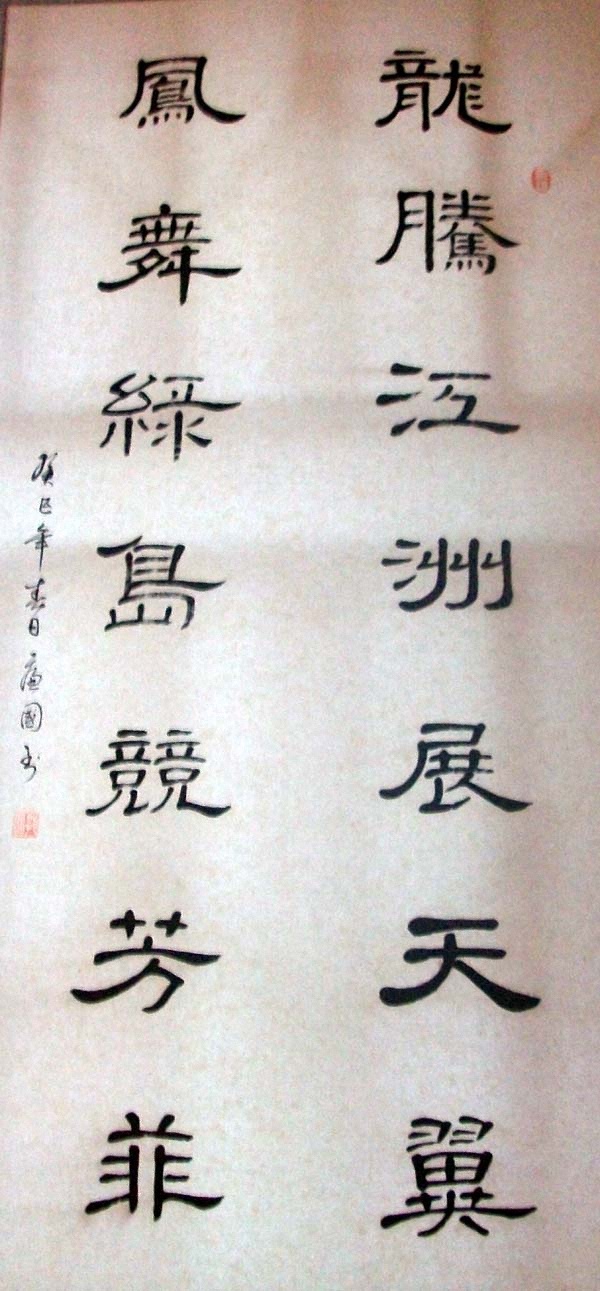 龍騰江洲展天翼
鳳舞綠島競芳菲
癸巳年春日廉國书